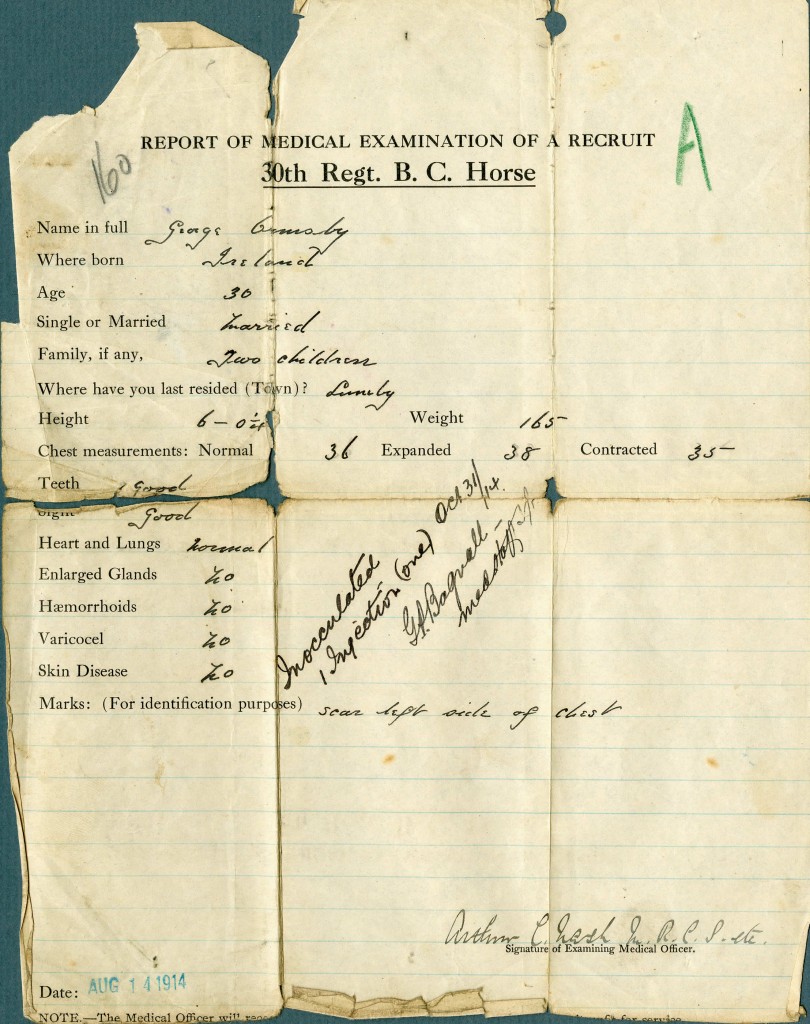 REPORT OF MEDICAL EXAMINATION OF A RECRUIT
A
160
30th Regt. B. C. Horse
Name in full George Ormsby
Where born Ireland
Age 30
Single or Married Married
Family, if any, Two children
Where have you last resided (Town)? Lumby
Height 6-0¼ Weight 165
Chest measurements: Normal 36 Expanded 38 Contracted 35
Teeth Good
Sight Good
Heart and Lungs normal
Enlarged Glands No
Hæmorrhoids No
Varicocel No
Skin Disease No
Inocculated
1 Injection (one) Oct 31/14.
Bagnall
Marks: (For identification purposes) scar left side of chest
Arthur C. Nash M. R. C. S. etc.
Signature of Examining Medical Officer.
Date: AUG 14 1914
NOTE.—The Medical Officer will
for service